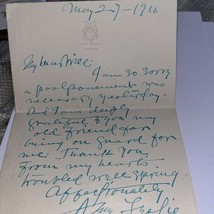 May 27-1916
My dear Will
I am so sorry
a postponement was
necessary yesterday.
And I am deeply
grateful to you my
old friend for
being on guard for
me. Thank you
from my hearts
troubled well spring.
Affectionately
Amy Leslie